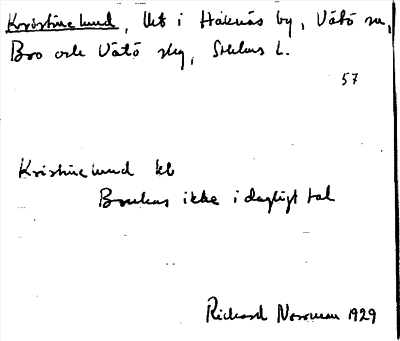 Kristinelund, lht i Håknäs by, Vätö sn,
Bro och Vätö skg, Sthlms L.
57
Kristinelund kb
Brukas ikke i dagligt tal
Rickard Norrman 1929